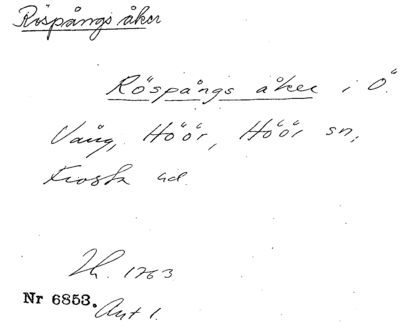 Röspångs åker
Röspångs åker i Ö.
Vång, Höör, Höör sn,
Frosta hd.
Lh. 1763
Nr 6853. Akt 1.